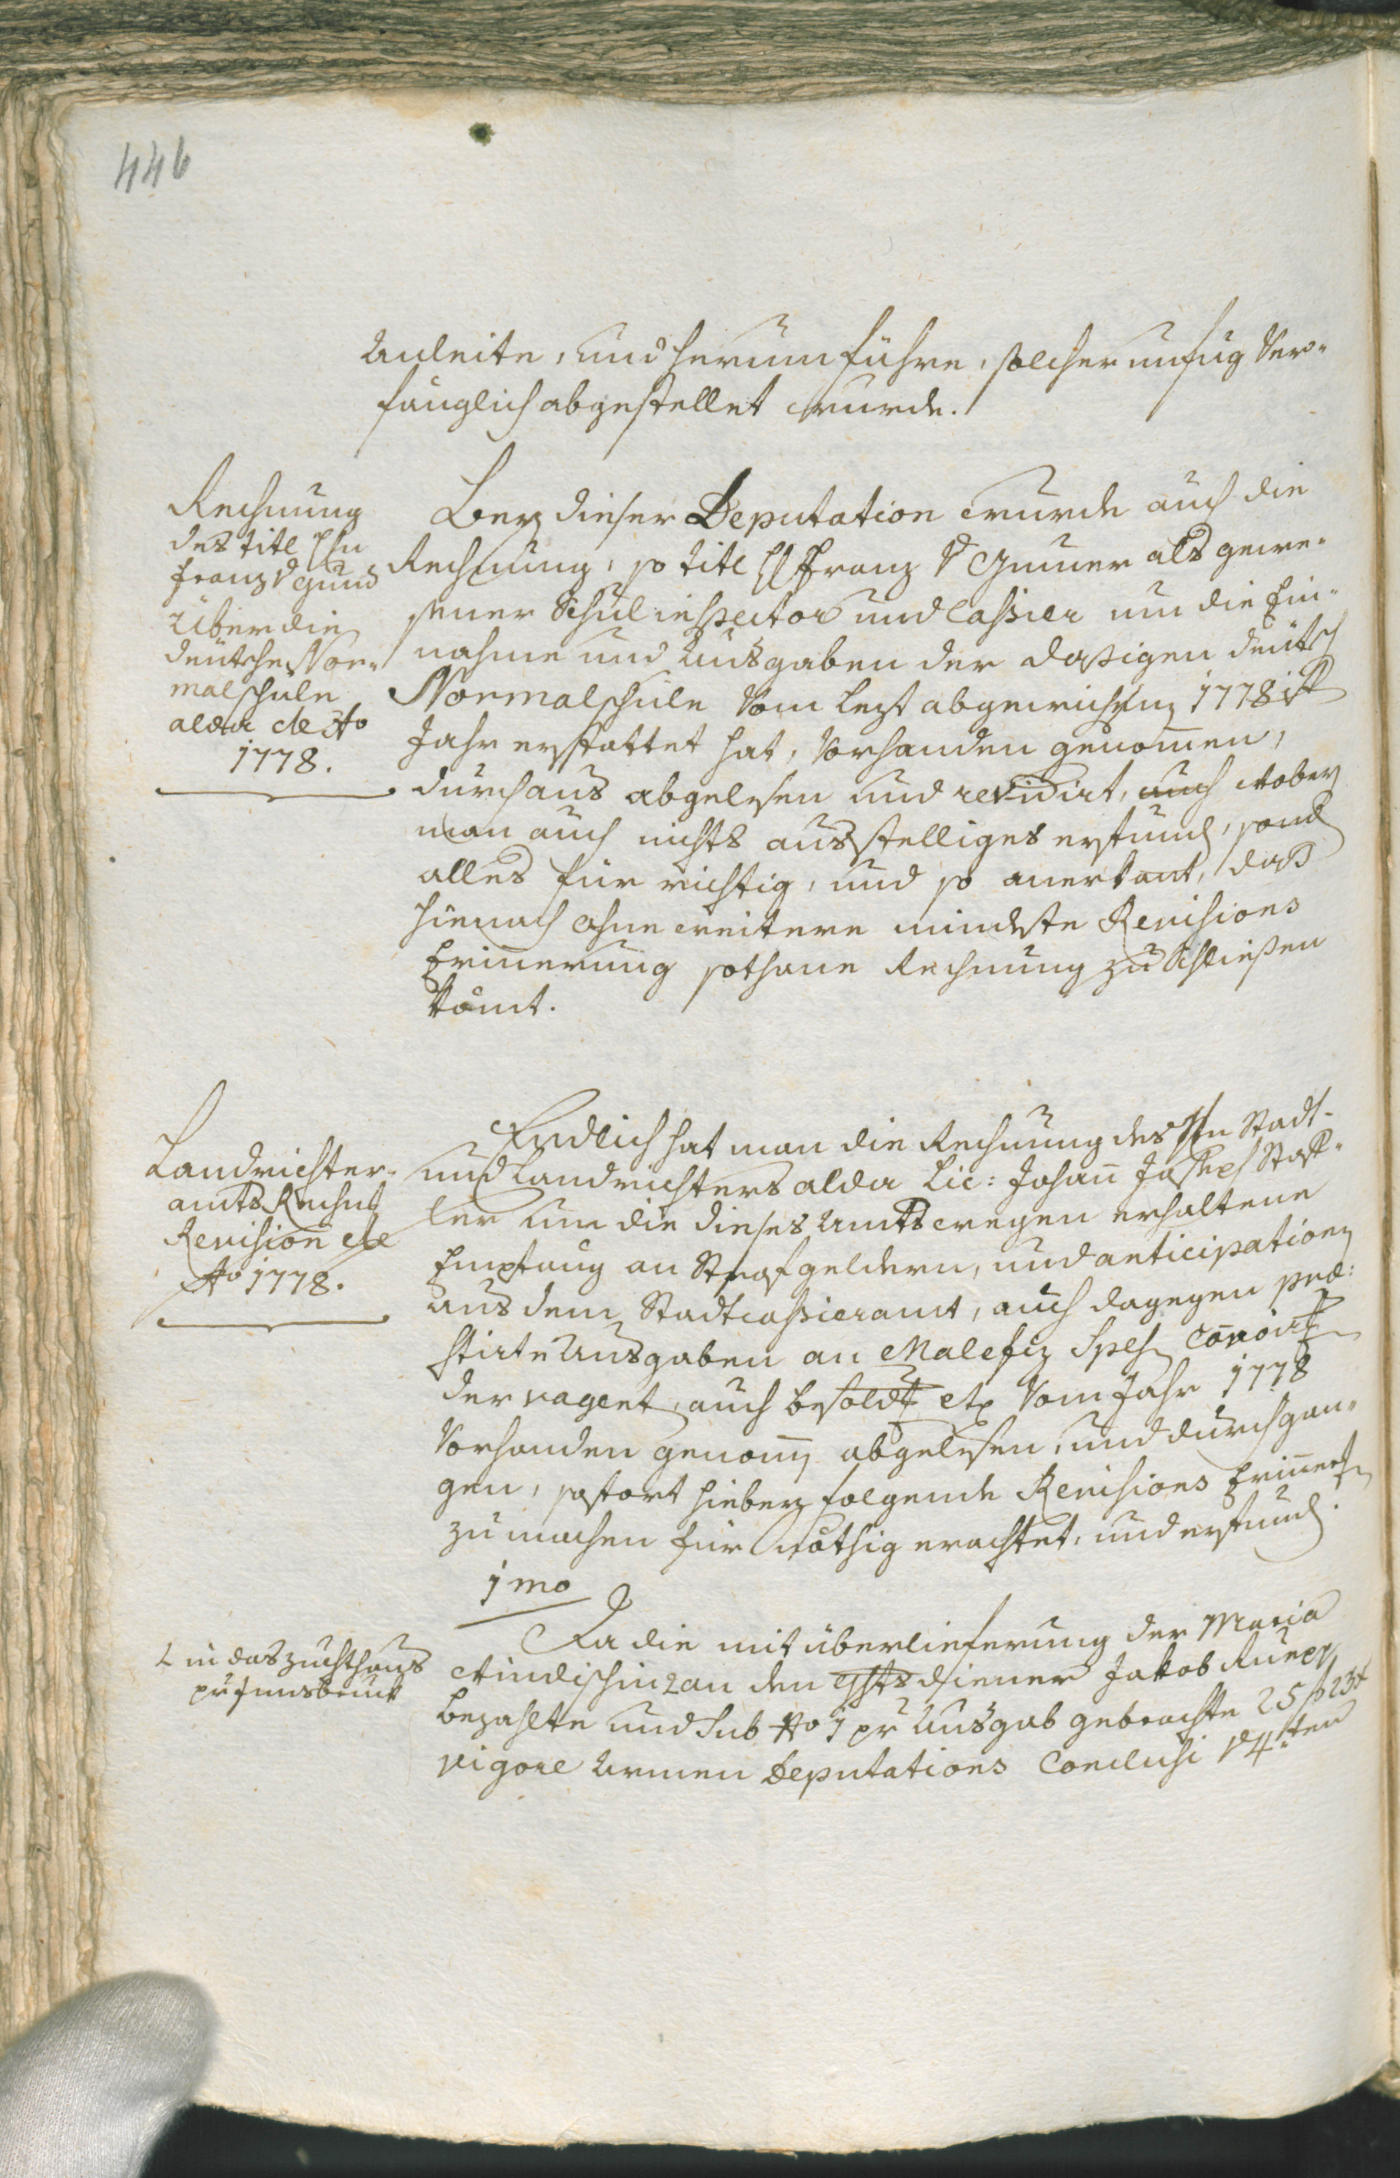 446
Anleite, und herumführe, solcher unfug ver-
fänglich abgestellet wurde.
Rechnung
des titl Hn
Franz v
über die
deutsche Nor-
malschule
alda de Ao
1778.
Bey dieser Deputation wurde auch die
Rechnung, so titl H Franz v als gewe-
sener Schulinspector und Cassier um die Ein-
nahme und Ausgaben der dasigen deutsch
Normalschule vom lezt abgewichenen 1778ist
Jahr erstattet hat, vorhanden genommen,
durchaus abgelesen und revidirt, auch wobey
man auch nichts ausstelliges erfund, sond
alles für richtig, und so anerkant, daß
hienach ohne weitere mindste Revisions
Erinnerung sothane Rechnung zu schliessen
komt.
Landrichter-
amts Rechnung
Revision de
Ao 1778.
Endlich hat man die Rechnung des Hn Stadt-
und Landrichters alda Lic: Johann Joseph Staf-
ler um die dieses Amts wegen erhaltene
Empfang an Strafgeldern, und anticipationen
aus dem Stadtcassieramt, auch dagegen præ-
stirte Ausgaben an Malefiz Spesen
der vagent, auch besoldg etc vom Jahr 1778
vorhanden genommen abgelesen, und durchgan-
gen, sofort hiebey folgende Revisions Erinnerungen
zu machen für nöthig erachtet, und erfunden.
1mo
Da die mit überlieferung der Maria
∠ in das zuchthaus
pr Innsbruck
Windischin ∠ an den ghtsdiener Jakob
bezahlte und sub No 1 pr Ausgab gebrachte 25 f 23 x
vigore Armen Deputations Conclusi v 4ten